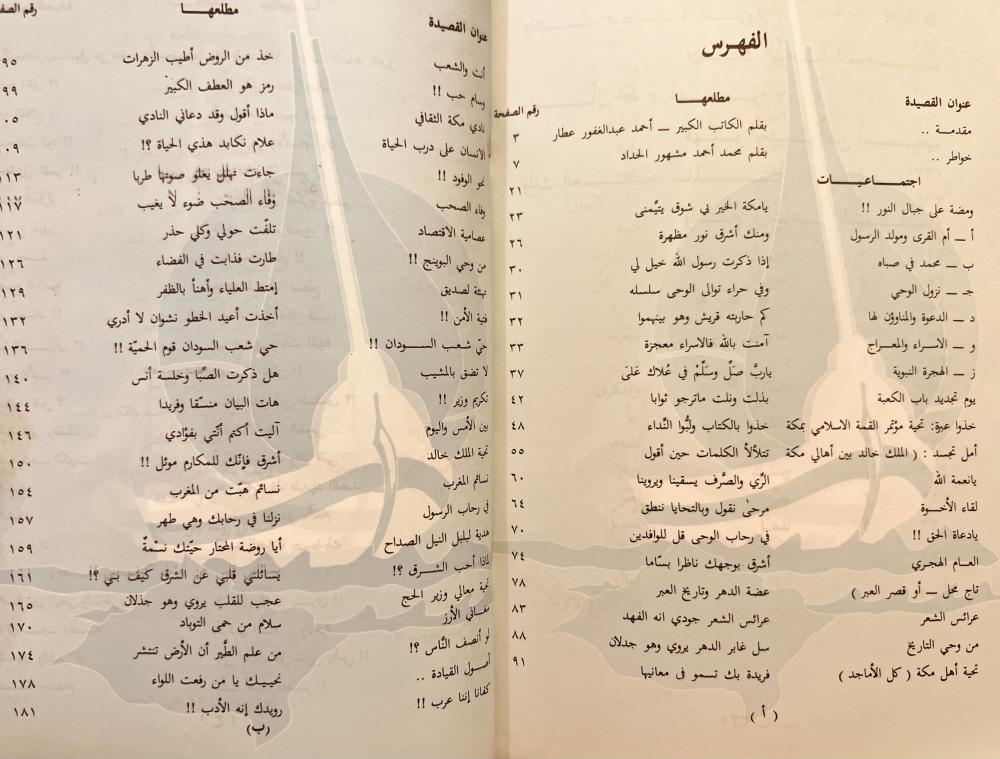 الفهـرس
عنوان القصيدة مطلعهـــا رقم الصفحة
مقدمــة .. بقلم الكاتب الكبير ــ أحمد عبدالغفور عطار ٣
خواطر .. بقلم محمد أحمد مشهور الحداد ٧
اجتمــاعيــات ٢١
ومضة على جبال النور !! يامكة الخير بي شوق يتيّمنى ٢٣
أ ــ أم القرى ومولد الرسول ومنك أشرق نور مظهرة ٢٦
ب ــ محمد في صباه إذا ذكرت رسول الله خيل لي ٣٠
جـ ــ نزول الوحي وفي حراء توالى الوحى سلسله ٣١
د ــ الدعوة والمناوؤن لها كم حاربته قريش وهو بينهموا ٣٢
و ــ الاسراء والمعـراج آمنت بالله فالاسراء معجزة ٣٣
ز ــ الهجرة النبوية ياربّ صَلِّ وسَلِّمْ في عُلاك عَلىَ ٣٧
يوم تجديد باب الكعبة بذلت ونلت ماترجو ثوابا ٤٢
خذوا عبرة: تحية مؤتمر القمة الاسلامي بمكة خذوا بالكتاب ولبُّوا النِّداء ٤٨
أمل تجسد : ( الملك خالد بين أهالي مكة تتلألأ الكلمات حين أقول ٥٥
يانعمة الله الرِّي والصَّرف يسقينا ويروينا ٦٠
لقاء الأخـوة مرحىٰ نقول وبالتحايا ننطق ٦٤
يادعاة الحق !! في رحاب الوحى قل للوافدين ٧٠
العـام الهجري أشرق بوجهك ناظرا بسّاما ٧٤
تاج محل ــ أو قصر العبر ) عضة الدهر وتاريخ العبر ٧٨
عرائس الشعر عرائس الشعر جودي انه الفهد ٨٣
من وحي التاريخ سل غابر الدهر يروي وهو جدلان ٨٨
تحية أهل مكة ( كل الأماجد ) فريدة بك تسمو فى معانيها ٩١
( أ )
عنوان القصيدة مطلعهـــا رقم الصف
أنت والشعب خذ من الروض أطيب الزهرات ٩٥
وسام حب !! رمز هو العطف الكبير ٩٩
نادي مكة الثقافي ماذا أقول وقد دعاني النادي ٠٥
الانسان على درب الحياة علام نكابد هذي الحياة ؟! ٠٩
نحو الوفود !! جاءت تهلل يعلو صوتها طربا ١١٣
وفاء الصحب وَفاء الصحب ضوء لا يغيب ١١٧
عصامية الاقتصاد تلفّت حولي وكلي حذر ١٢١
من وحي البوينج !! طارت فذابت في الفضاء ١٢٦
تهنئة لصديق إمتط العلياء وأهنأ بالظفر ١٢٩
فتية الأمن !! أخذت أعيد الخطو نشوان لا أدري ١٣٢
حيّ شعـب الســـودان !! حي شعب السودان قوم الحميّة !! ١٣٦
لا تضق بالمشيب هل ذكرت الصِّبا وخلسة أنس ١٤٠
تكريم وزير !! هات البيان منسّقا وفريدا ١٤٤
بين الأمس واليوم آليت أكتم أنّتي بفؤادي ١٤٦
تحية الملك خالد أشرق فإنّك للمكارم موئل !! ١٥٠
نسائم المغرب نسائم هبّت من المغرب ١٥٤
في رحاب الرسول نزلنا في رحابك وهي طهر ١٥٧
هدية لبلبل النيل الصداح أيا روضة المختار حيّتك نسْمةٌ ١٥٩
لماذا أحب الشـرق ؟! يسائلني قلبي عن الشرق كيف بي ؟! ١٦١
تحية معالي وزير الحج عجب للقلب يروي وهو جذلان ١٦٥
مغـاني الأرز سلام من حمى التوباد ١٧٠
لو أنصف النَّاس ؟! من علم الطَّير أن الأرض تنتشر ١٧٤
أصـول القيادة .. نحييـك يا من رفعت اللواء ١٧٨
كفانا إننا عرب !! رويدك إنه الأدب !! ١٨١
(ب)